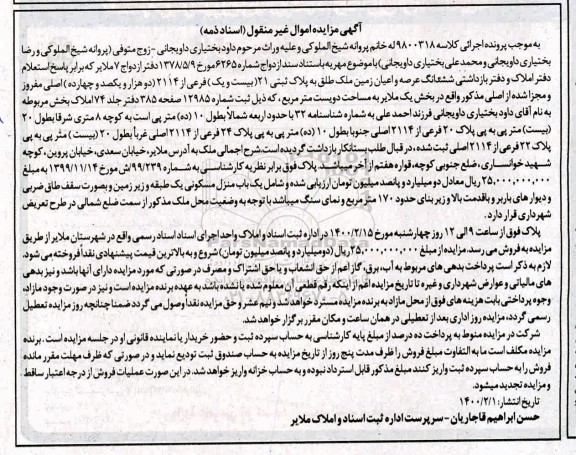 آگهی مزایده اموال غیر منقول (اسناد ذمه)
به موجب پرونده اجرائی کلاسه ۹۸۰۰۳۱۸ له خانم پروانه شیخ الملوکی و علیه وراث مرحوم داود بختیاری داویجانی - زوج متوفی (پروانه شیخ الملوکی و رضا
بختیاری داویجانی و محمد علی بختیاری داویجانی) با موضوع مهریه باستناد سند ازدواج شماره ۶۲۶۵ مورخ ۱۳۷۸/۵/۹ دفتر ازدواج ۷ ملایر که برابر پاسخ استعلام
دفتر املاک و دفتر بازداشتی ششدانگ عرصه و اعیان زمین ملک طلق به پلاک ثبتی ۲۱ (بیست و یک) فرعی از ۲۱۱۴ (دو هزار و یکصد و چهارده) اصلی مفروز
و مجزا شده از اصلی مذکور واقع در بخش یک ملایر به مساحت دویست متر مربع، که ذیل ثبت شماره ۱۲۹۸۵ صفحه ۳۸۵ دفتر جلد ۷۴ املاک بخش مربوطه
به نام آقای داود بختیاری داویجانی فرزند احمد علی به شماره شناسنامه ۳۲ با حدود اربعه شمالاً بطول ۱۰ (ده) متر پی است به کوچه ۸ متری شرقا بطول ۲۰
(بیست) متر پی به پی پلاک ۲۰ فرعی از ۲۱۱۴ اصلی جنوبا بطول ۱۰ (ده) متر پی به پی پلاک ۲۴ فرعی از ۲۱۱۴ اصلی غرباً بطول ۲۰ (بیست) متر پی به پی
پلاک ۲۲ فرعی از ۲۱۱۴ اصلی ثبت شده، در قبال طلب بستانکار بازداشت گردیده است. شرح اجمالی ملک به آدرس ملایر، خیابان سعدی، خیابان پروین، کوچه
شهید خوانساری، ضلع جنوبی کوچه، قواره هفتم از آخر میباشد. پلاک فوق برابر نظریه کارشناسی به شماره ۹۹/۲۳۹/ش مورخ ۱۳۹۹/۱۱/۱۴ به مبلغ
۲۵,۰۰۰,۰۰۰,۰۰۰ ریال معادل دو میلیارد و پانصد میلیون تومان ارزیابی شده و شامل یک باب منزل مسکونی یک طبقه و زیر زمین و بصورت سقف طاق ضربی
و دیوار های باربر و باقدمت بالا و زیر بنای حدود ۱۷۰ متر مربع و نمای سنگ میباشد با توجه به وضعیت محل ملک مذکور از سمت ضلع شمالی در طرح تعریض
شهرداری قرار دارد.
پلاک فوق از ساعت ۹ الی ۱۲ روز چهارشنبه مورخ ۱۴۰۰/۲/۱۵ در اداره ثبت اسناد و املاک واحد اجرای اسناد رسمی واقع در شهرستان ملایر از طریق
مزایده به فروش می رسد. مزایده از مبلغ ۲۵,۰۰۰,۰۰۰,۰۰۰ ریال (دومیلیارد و پانصد میلیون تومان) شروع و به بالاترین قیمت پیشنهادی نقداً فروخته می شود.
لازم به ذکر است پرداخت بدهی های مربوط به آب، برق، گاز اعم از حق انشعاب و یا حق اشتراک و مصرف در صورتی که مورد مزایده دارای آنها باشد و نیز بدهی
های مالیاتی و عوارض شهرداری و غیره تا تاریخ مزایده اعم از اینکه رقم قطعی آن معلوم شده یا نشده باشد به عهده برنده مزایده است و نیز در صورت وجود مازاد،
وجوه پرداختی بابت هزینه های فوق از محل مازاد به برنده مزایده مسترد خواهد شد و نیم عشر و حق مزایده نقداً وصول می گردد ضمنا چنانچه روز مزایده تعطیل
رسمی گردد، مزایده روز اداری بعد از تعطیلی در همان ساعت و مکان مقرر برگزار خواهد شد.
شرکت در مزایده منوط به پرداخت ده درصد از مبلغ پایه کارشناسی به حساب سپرده ثبت و حضور خریدار یا نماینده قانونی او در جلسه مزایده است. برنده
مزایده مکلف است ما به التفاوت مبلغ فروش را ظرف مدت پنج روز از تاریخ مزایده به حساب صندوق ثبت تودیع نماید و در صورتی که ظرف مهلت مقرر مانده
فروش را به حساب سپرده ثبت واریز نکند مبلغ مذکور قابل استرداد نبوده و به حساب خزانه واریز خواهد شد، در این صورت عملیات فروش از درجه اعتبار ساقط
و مزایده تجدید میشود.
تاریخ انتشار: ۱۴۰۰/۲/۱
حسن ابراهیم قاجاریان - سرپرست اداره ثبت اسناد و املاک ملایر